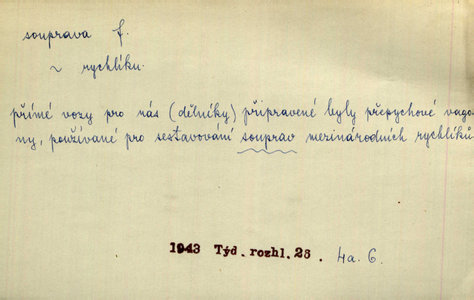 souprava f.
~ rychlíku.
přímé vozy pro nás (dělníky) připravené byly přepychové vago-
ny, používané pro sestavování souprav mezinárodních rychlíků
1943 Týd. rozhl. 25. 4a. 6.